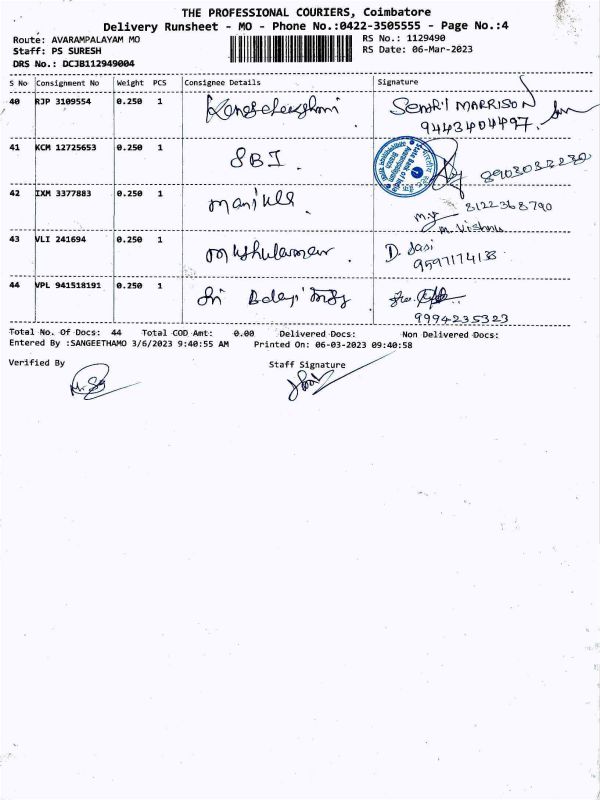 THE PROFESSIONAL COURIERS, Coimbatore
Delivery Runsheet - MO - Phone No.:0422-3505555 - Page No.:4
Route: AVARAMPALAYAM MO RS No.: 1129490
Staff: PS SURESH RS Date: 06-Mar-2023
DRS No.: DCJB112949004
S No Consignment No Weight PCS Consignee Details Signature
40 RJP 3109554 0.250 1 MARRISON
9443404497.
41 KCM 12725653 0.250 1 SBI State Bank of India
42 IXM 3377883 0.250 1 8122368790
m. Vishnu
43 VLI 241694 0.250 1 D. Sasi
44 VPL 941518191 0.250 1 Sri Balaji
9994235323
Total No. Of Docs: 44 Total COD Amt: 0.00 Delivered Docs: Non Delivered Docs:
Entered By :SANGEETHAMO 3/6/2023 9:40:55 AM Printed On: 06-03-2023 09:40:58
Verified By Staff Signature